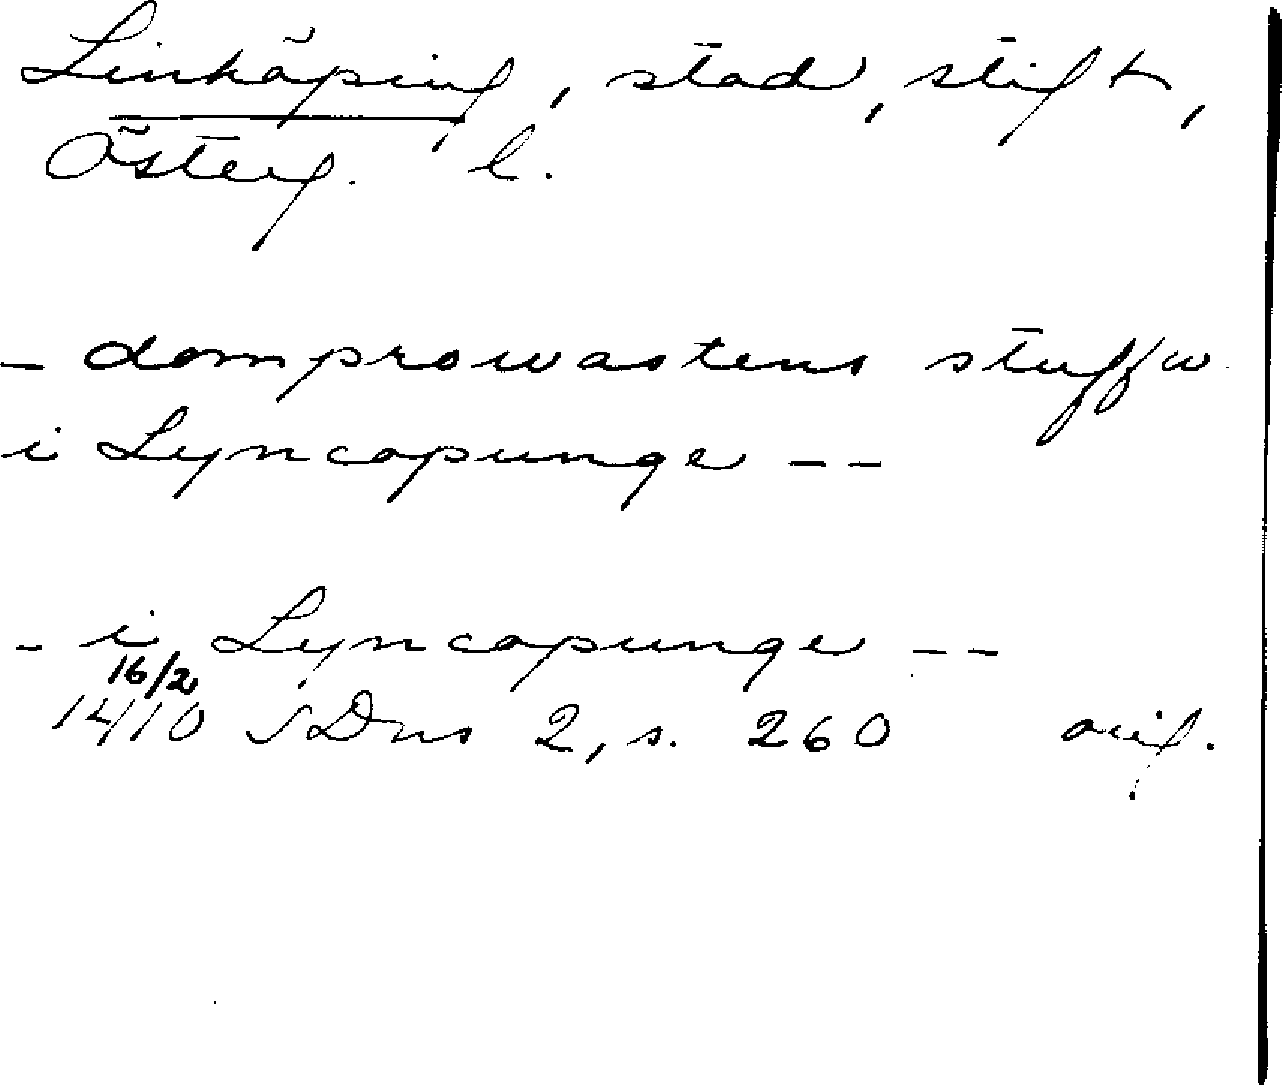 Linköping, stad, stift,
Österg. l.
- domprowastens stuffw
i Lyncopunge --
- i Lyncopunge --
16/2
1410 SDns 2, s. 260 orig.